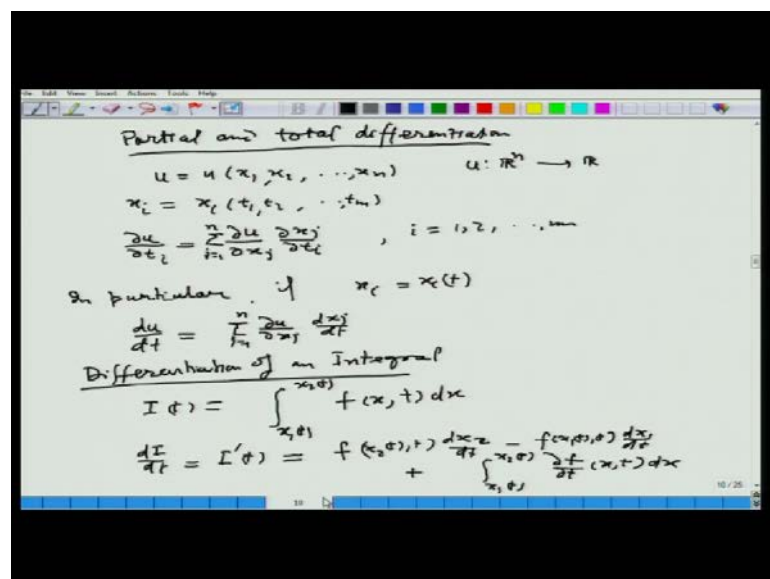 File Edit View Insert Actions Tools Help
Partial and total differentiation
u = u(x₁, x₂, ..., xₙ)    u: ℝⁿ → ℝ
xᵢ = xᵢ(t₁, t₂, ..., tₘ)
∂u/∂tᵢ = Σⱼ₌₁ⁿ ∂u/∂xⱼ ∂xⱼ/∂tᵢ , i = 1, 2, ..., m
In particular, if xᵢ = xᵢ(t)
du/dt = Σⱼ₌₁ⁿ ∂u/∂xⱼ dxⱼ/dt
Differentiation of an Integral
I(t) = ∫_{x₁(t)}^{x₂(t)} f(x, t) dx
dI/dt = I'(t) = f(x₂(t), t) dx₂/dt - f(x₁(t), t) dx₁/dt
+ ∫_{x₁(t)}^{x₂(t)} ∂f/∂t (x, t) dx
10 / 25
10